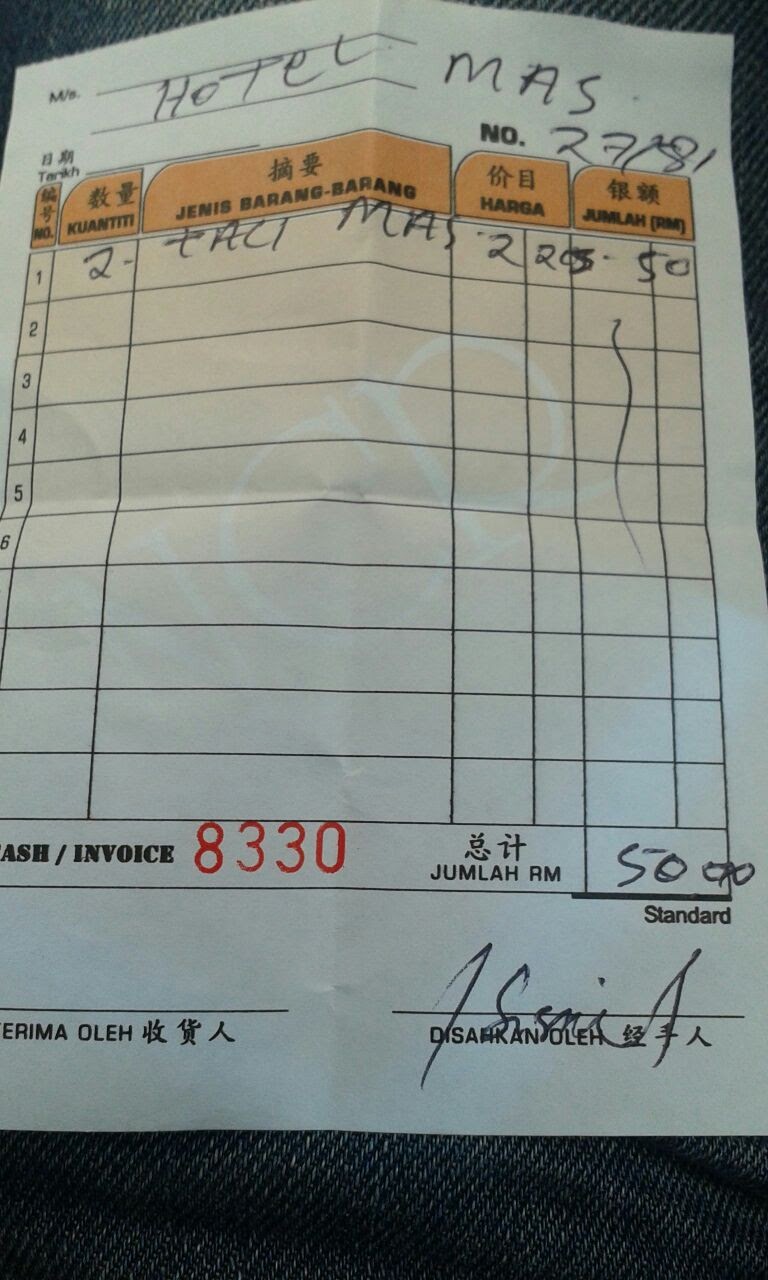 M/s. HOTEL MAS
NO. 27/81
日期
Tarikh
编号 NO. 数量 KUANTITI 摘要 JENIS BARANG-BARANG 价目 HARGA 银额 JUMLAH (RM)
1 2 MAS 50
2
3
4
5
6
ASH / INVOICE 8330 总计 JUMLAH RM 50 00
Standard
ERIMA OLEH 收货人 DISAHKAN OLEH 经手人